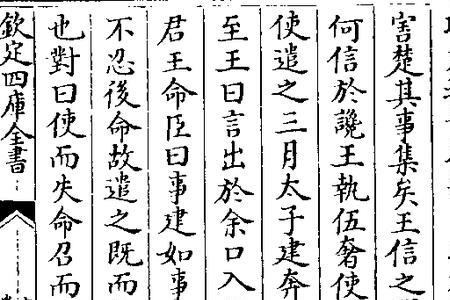 害楚其事集矣王信之
何信於讒王執伍奢使
使遣之三月太子建奔
至王曰言出於余口入
君王命臣曰事建如事
不忍後命故遣之既而
也對曰使而失命召而
欽定四庫全書